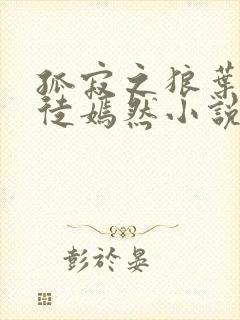 孤寂之狼葉
徒嫣然小說
彭於晏